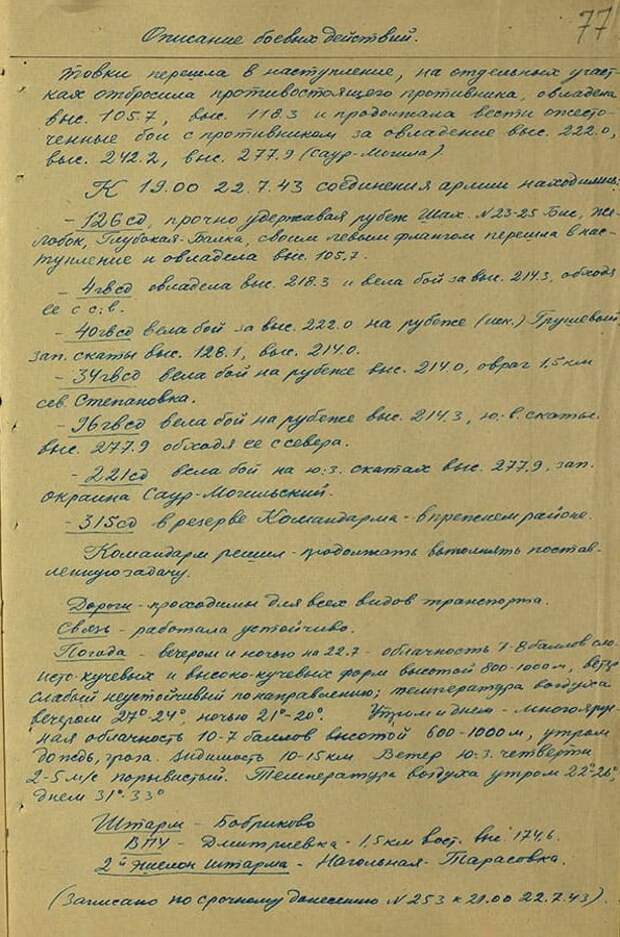 77
Описание боевых действий.
товки перешла в наступление, на отдельных участ-
ках отбросила противостоящего противника, овладела
выс. 105.7, выс. 118.3 и продолжала вести ожесто-
ченные бои с противником за овладение выс. 222.0,
выс. 242.2, выс. 277.9 (Саур-Могила).
К 19.00 22.7.43 соединения армии находились:
- 126 сд, прочно удерживая рубеж Шах. N 23-25 Бис, Же-
лобок, Глубокая-Балка, своим левым флангом перешла в нас-
тупление и овладела выс. 105.7.
- 4 гвсд овладела выс. 218.3 и вела бой за выс. 214.3, обходя
ее с с.в.
- 40 гвсд вела бой за выс. 222.0 на рубеже (иск.) Грушевый,
зап. скаты выс. 128.1, выс. 214.0.
- 34 гвсд вела бой на рубеже выс. 214.0, овраг 1,5 км
сев. Степановка.
- 96 гвсд вела бой на рубеже выс. 214.3, ю.-в. скаты
выс. 277.9 обходя ее с севера.
- 221 сд вела бой на ю.-з. скатах выс. 277.9, зап.
окраина Саур-Могильский.
- 315 сд в резерве Командарма - в прежнем районе.
Командарм решил - продолжать выполнять постав-
ленную задачу.
Дороги - проходимы для всех видов транспорта.
Связь - работала устойчиво.
Погода - вечером и ночью на 22.7 - облачность 7-8 баллов сло-
исто-кучевых и высоко-кучевых форм высотой 800-1000 м, ветер
слабый неустойчивый по направлению; температура воздуха
вечером 27°-24°, ночью 21°-20°. Утром и днем - многоярус-
ная облачность 10-7 баллов высотой 600-1000 м, утром
дождь, гроза. Видимость 10-15 км. Ветер ю.-з. четверти
2-5 м/с порывистый. Температура воздуха утром 22°-26°,
днем 31°-33°
Штарм - Бобриково
ВПУ - Дмитриевка - 1,5 км вост. выс. 174.6.
2й эшелон штарма - Нагольная-Тарасовка.
(Записано по срочному донесению N 253 к 21.00 22.7.43).